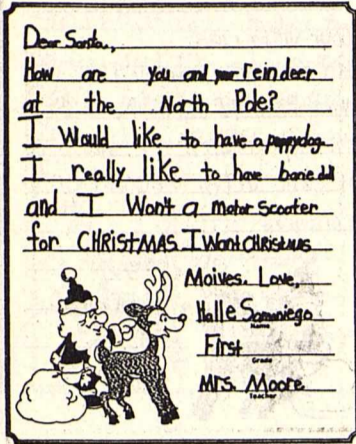 Dear Santa.,
How are you and your reindeer
at the North Pole?
I Would like to have a puppydog.
I really like to have barie doll
and I Won't a motor scooter
for CHRISTMAS I Want CHRISTMAS
Moives. Love,
Halle Samaniego
Name
First
Grade
Mrs. Moore
Teacher